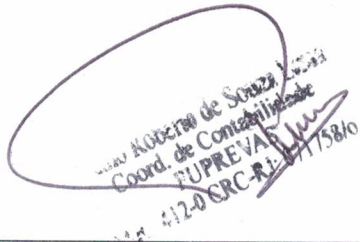 Roberto de Souza
Coord. de Contabilidade
FUPREVA
412-0 CRC-RJ 758/0